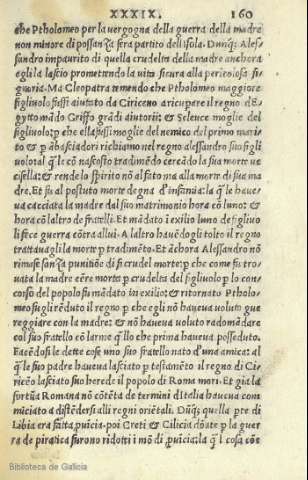 XXXIX. 160
che Ptholomeo per la vergogna della guerra della madre
non minore di possanza sera partito dell isola. Dunq; Ales-
sandro impaurito di quella crudelta della madre anchora
egli la lascio promettendo la vita sicura alla pericolosa si-
gnoria. Ma Cleopatra temendo che Ptholomeo maggiore
figliuolo fossi aiutato da Ciriceno a ricupere il regno de
gytto mãdo Griffo grãdi aiutorii: & Seleuce moglie del
figliuolo: ꝑ che ella fussi moglie del nemico del primo mari-
to & ꝑ ãbasciadori richiamo nel regno alessandro suo figli
uolo: al q̃ le cõ nascosto tradimẽdo cercãdo la sua morte uc
cisella: & rende lo spirito nõ al fato ma alla morte di sua ma
dre. Et fu al postuto morte degna d' infamia: la q̃ le hauea
ua cacciata la madre dal suo matrimonio hora cõ luno: &
hora cõ laltro de fratelli. Et mãdato i exilio luno de figliuo
li fece guerra cõtra allui. A laltro hauẽdogli tolto il regno
trattaua gli la morte ꝑ tradimẽto. Et ãchora Alessandro nõ
rimase sanza punitiõ di si crudel morte: ꝑ che come fu tro-
uata la madre eẽre morta ꝑ crudelta del figliuolo ꝑ lo con-
corso del popolo fu mãdato in exilio: & ritornato Ptholo-
meo fugli rẽduto il regno ꝑ che egli nõ haueua voluto gue
reggiare con la madre: & nõ haueua voluto radomãdare
col suo fratello cõ larme q̃ llo che prima haueua posseduto.
Facẽdosi le dette cose uno suo fratello nato d' una amica: al
q̃ le il suo padre haueua lasciato ꝑ testamẽto il regno di Ci-
ricẽo lasciato suo herede il popolo di Roma mori. Et gia la
fortũa Romana nõ cõtẽta de termini d' Italia haueua com
minciato a distẽdersi alli regni oriẽtali. Dũq; quella pte di
Libia era fatta ꝓuicia: poi Creti & Cilicia dõate ꝑ la guer
ra de piratica furono ridotti i mõ di ꝓuicia: la q̃ l cosa cõe
Biblioteca de Galicia